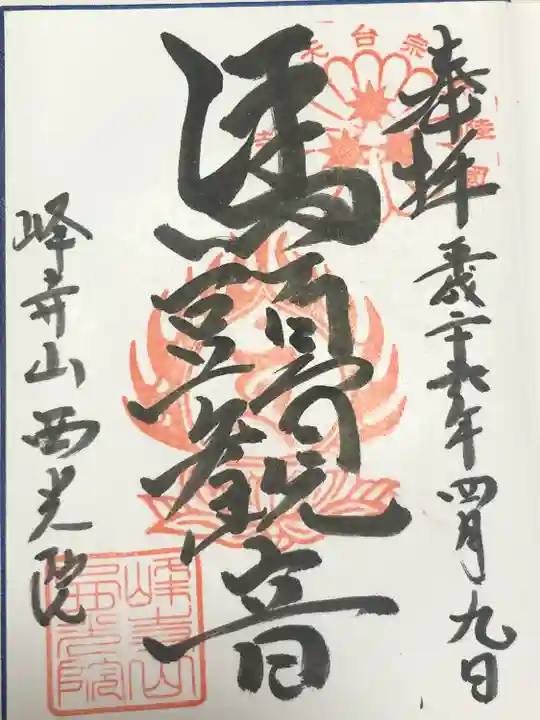 奉拝
平成二十六年四月九日
馬頭観音
峰寺山西光院
天台宗
峰寺山
西光院